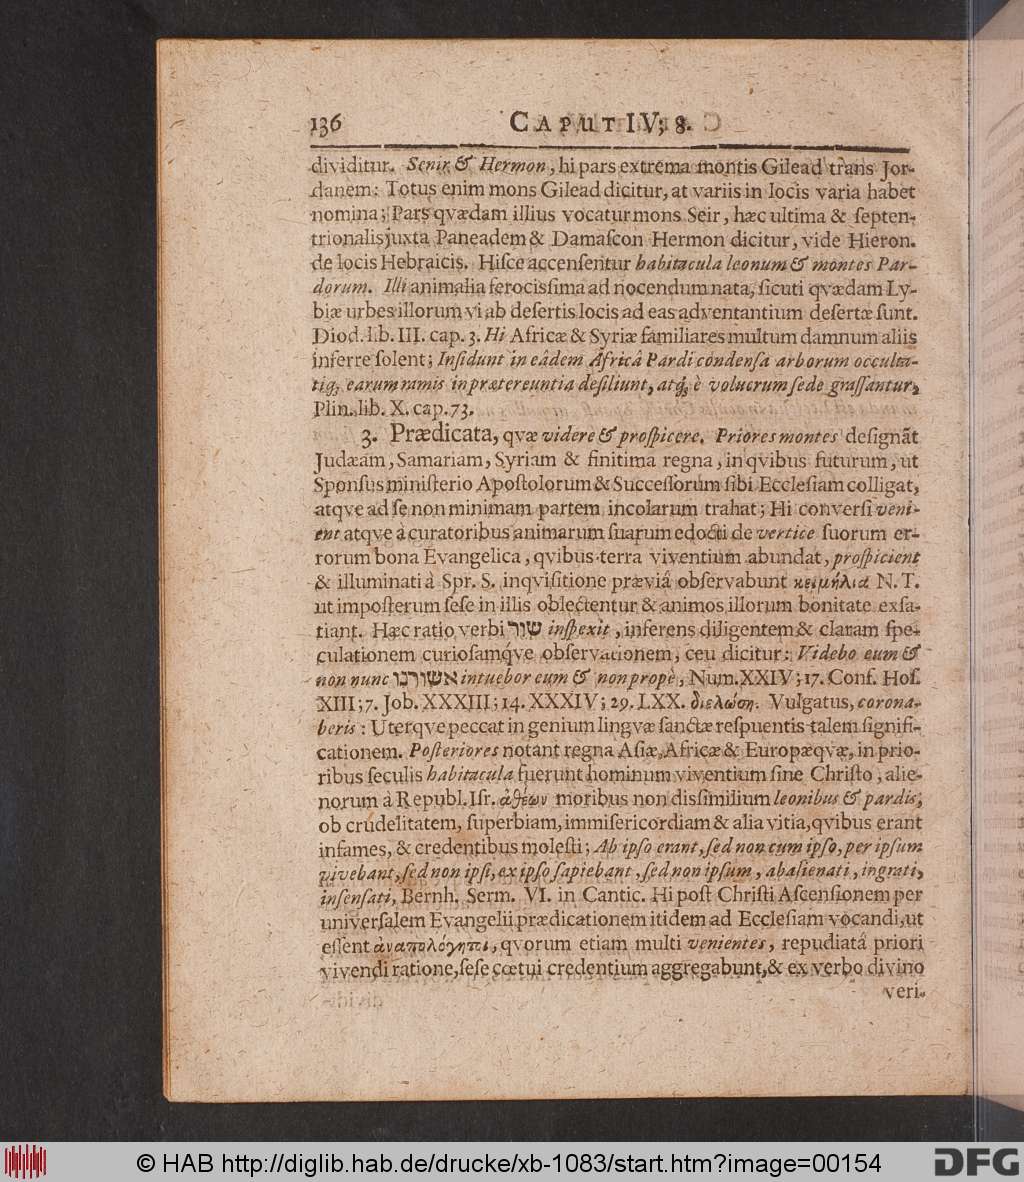 136 CAPUT IV; 8.
dividitur. Senir & Hermon, hi pars extrema montis Gilead trans Jor-
danem: Totus enim mons Gilead dicitur, at variis in locis varia habet
nomina; Pars qvædam illius vocatur mons Seir, hæc ultima & ſepten-
trionalis juxta Paneadem & Damaſcon Hermon dicitur, vide Hieron.
de locis Hebraicis. Hiſce accenſentur habitacula leonum & montes Par-
dorum. Illi animalia ferocisſima ad nocendum nata, ſicuti qvædam Ly-
biæ urbes illorum vi ab deſertis locis ad eas adventantium deſertæ ſunt.
Diod. lib. III. cap. 3. Hi Africæ & Syriæ familiares multum damnum aliis
inferre ſolent; Inſidunt in eâdem Africâ Pardi condenſa arborum occulta-
tiq; earum ramis in prætereuntia deſiliunt, atq; è volucrum ſede graſſantur,
Plin. lib. X. cap. 73.
3. Prædicata, qvæ videre & proſpicere. Priores montes deſignãt
Judæam, Samariam, Syriam & finitima regna, in qvibus futurum, ut
Sponſus miniſterio Apoſtolorum & Succeſſorum ſibi Eccleſiam colligat,
atqve ad ſe non minimam partem incolarum trahat; Hi converſi veni-
ent atqve à curatoribus animarum ſuarum edocti de vertice ſuorum er-
rorum bona Evangelica, qvibus terra viventium abundat, proſpicient
& illuminati à Spr. S. inqviſitione præviâ obſervabunt κειμήλια N. T.
ut impoſterum ſeſe in illis oblectentur & animos illorum bonitate exſa-
tiant. Hæc ratio verbi שור inſpexit, inferens diligentem & claram ſpe-
culationem curioſamq́ve obſervationem, ceu dicitur: Videbo eum &
non nunc אשורנו intuebor eum & non propè, Num. XXIV; 17. Conf. Hoſ.
XIII; 7. Job. XXXIII; 14. XXXIV; 29. LXX. διελώση. Vulgatus, corona-
beris: Uterqve peccat in genium lingvæ ſanctæ reſpuentis talem ſignifi-
cationem. Poſteriores notant regna Aſiæ, Africæ & Europæ qvæ, in prio-
ribus ſeculis habitacula fuerunt hominum viventium ſine Chriſto, alie-
norum à Republ. Iſr. ἀθέων moribus non disſimilium leonibus & pardis,
ob crudelitatem, ſuperbiam, immiſericordiam & alia vitia, qvibus erant
infames, & credentibus moleſti; Ab ipſo erant, ſed non cum ipſo, per ipſum
vivebant, ſed non ipſi, ex ipſo ſapiebant, ſed non ipſum, abalienati, ingrati,
inſenſati, Bernh. Serm. VI. in Cantic. Hi poſt Chriſti Aſcenſionem per
univerſalem Evangelii prædicationem itidem ad Eccleſiam vocandi, ut
eſſent ἀναπολόγητοι, qvorum etiam multi venientes, repudiatâ priori
vivendi ratione, ſeſe cœtui credentium aggregabunt, & ex verbo divino
veri-
© HAB http://diglib.hab.de/drucke/xb-1083/start.htm?image=00154
DFG